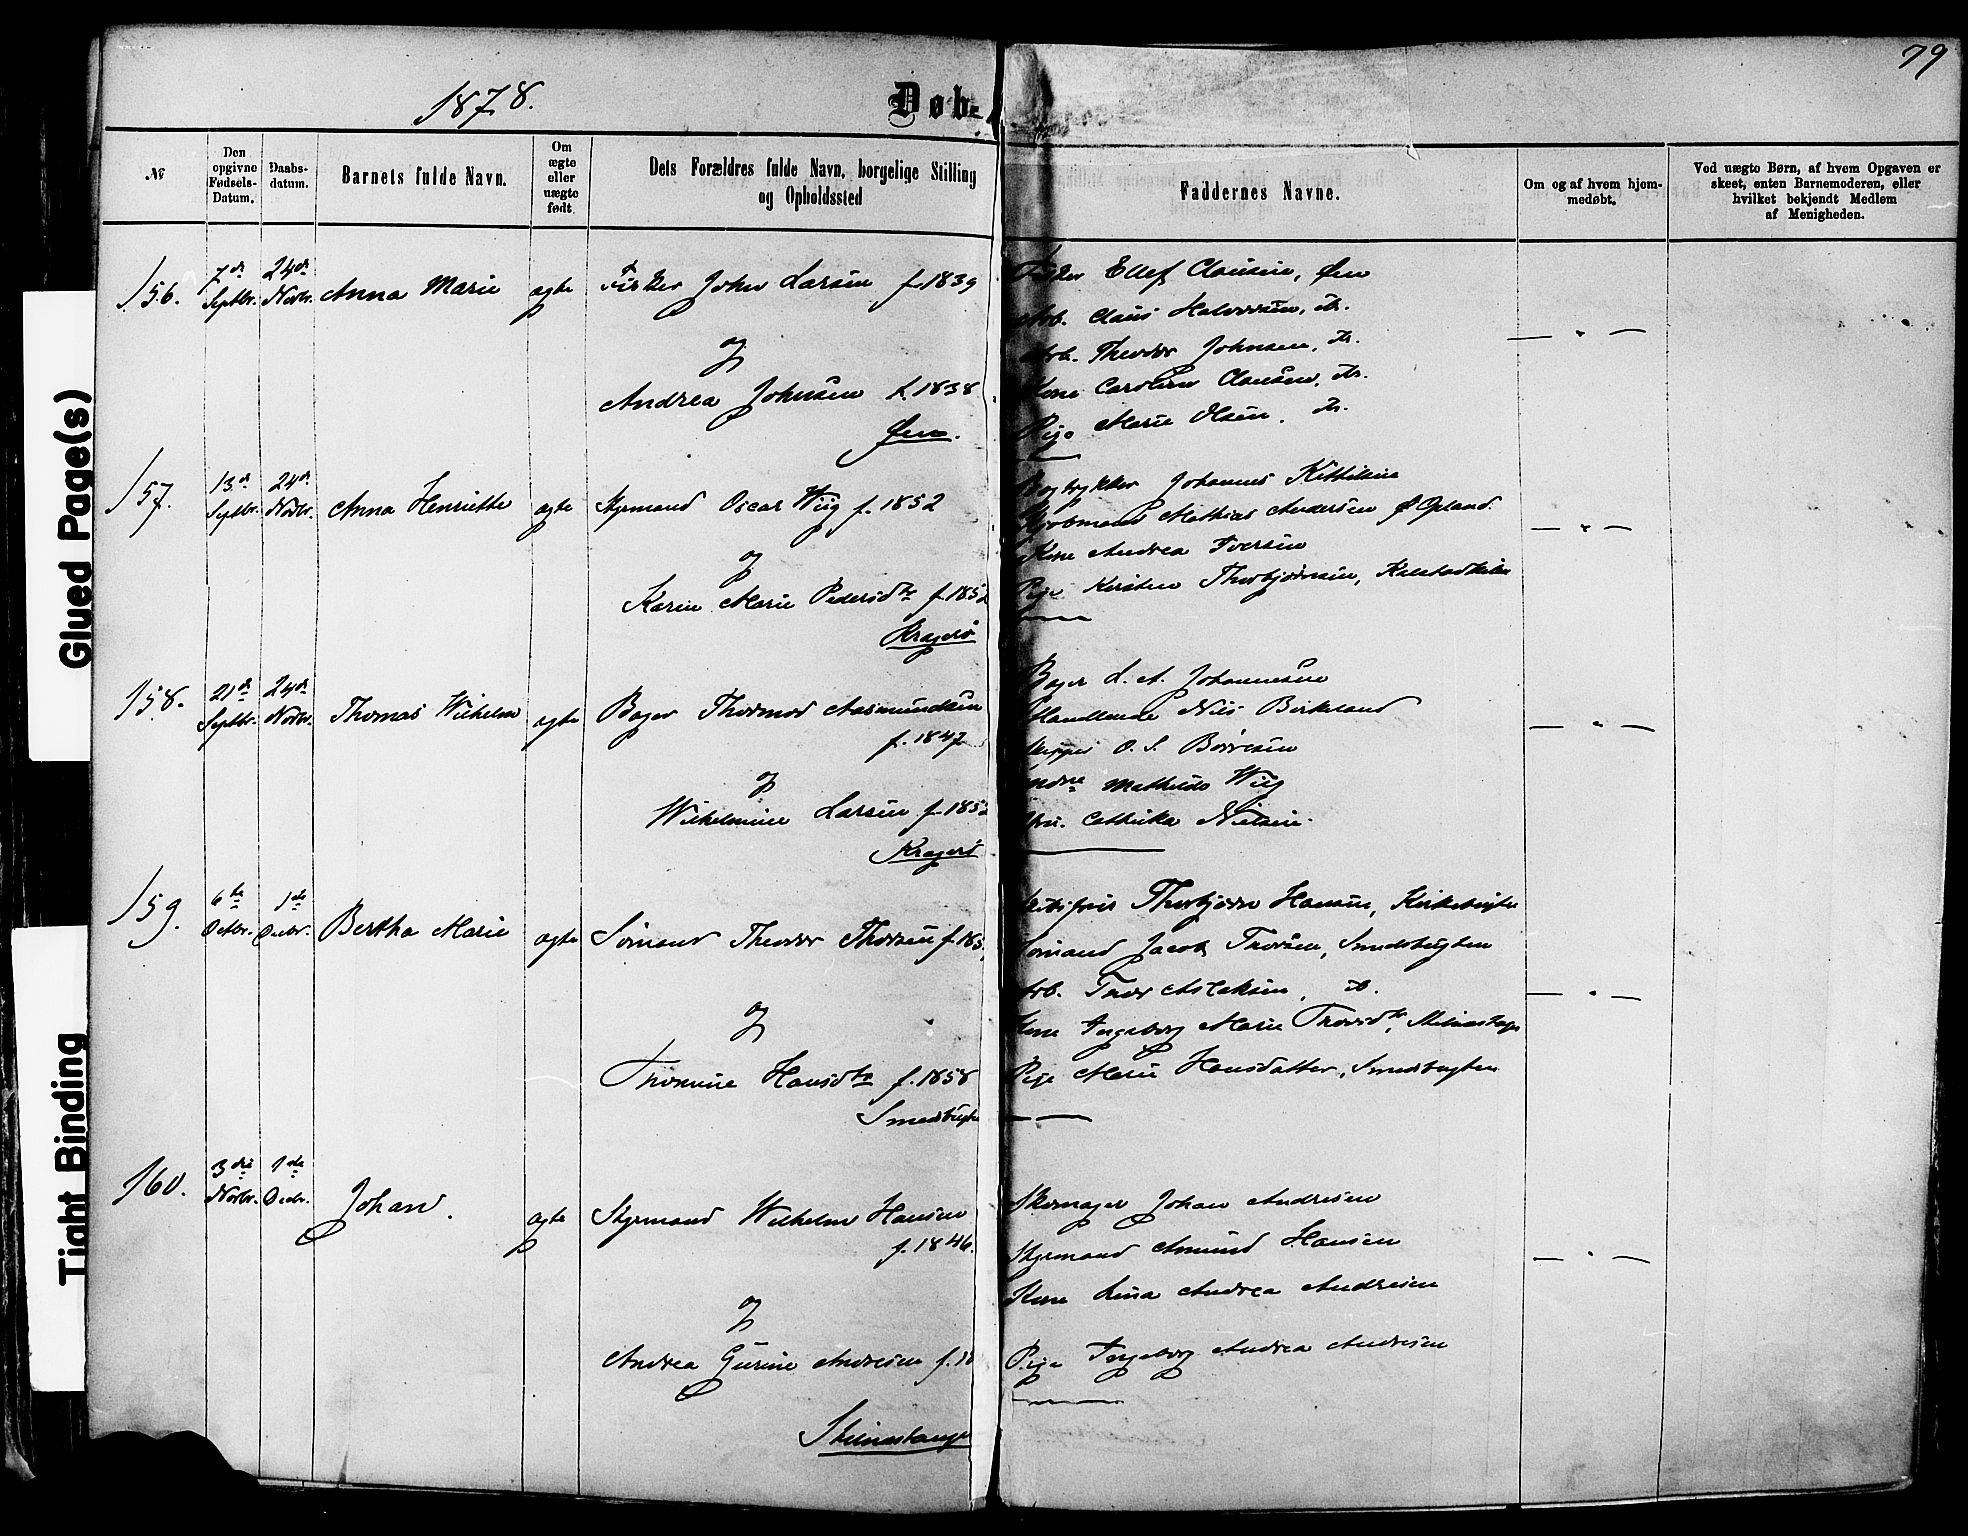 79
1878.
Døb-
№
Den opgivne Fødsels-Datum.
Daabs-datum.
Barnets fulde Navn.
Om ægte eller uægte født.
Dets Forældres fulde Navn, borgelige Stilling og Opholdssted
Faddernes Navne.
Om og af hvem hjem-medøbt.
Ved uægte Børn, af hvem Opgaven er skeet, enten Barnemoderen, eller hvilket bekjendt Medlem af Menigheden.
156.
7de Septbr.
24de Novbr.
Anna Marie
ægte
Fisker John Larsen f. 1839
og
Andrea Johnsen f. 1838
Øen.
Fisker Ellef Clausen, Øen
Arb. Claus Halvorsen, do.
Arb. Theodor Johnsen, do.
Kone Caroline Clausen, do.
Pige Marie Olsen. do.
157.
13de Septbr.
24de Novbr.
Anna Henriette
ægte
Styrmand Oscar Wiig f. 1852
og
Karen Marie Pedersdtr f. 1852
Kragerø
Bogtrykker Johannes Kittilsen
Kjøbmand Mathias Andersen
Kone Andrea Iversen
Pige Kirstine Thorbjørnsen, Kalstadkilen
158.
21de Septbr.
24de Novbr.
Thomas Wilhelm
ægte
Bager Thormod Aasmundsen
f. 1847
og
Wilhelmine Larsen f. 1852
Kragerø
Bager L. A. Johannesen
Handlende Nils Birkeland
Skipper O. S. Børresen
Mathilde Wiig
Cathinka Nielsen.
159.
6te Octbr.
1ste Decbr.
Bertha Marie
ægte
Sømand Theodor Thorsen f. 185
og
Thomine Hansdtr f. 1858
Smedsbugten
Thorbjørn Hansen, Kirkebugten
Sømand Jacob Thorsen, Smedsbugten
Arb. Thor Aslaksen, do.
Kone Ingeborg Marie Thorsdtr,
Pige Marie Hansdatter, Smedsbugten
160.
3die Novbr.
1ste Decbr.
Johan.
ægte
Styrmand Wilhelm Hansen
f. 1846.
og
Andrea Gurine Andresen f. 18
Skomager Johan Andresen
Styrmand Amund Hansen
Kone Lina Andrea Andresen
Pige Ingeborg Andrea Andresen
Glued Page(s)
Tight Binding